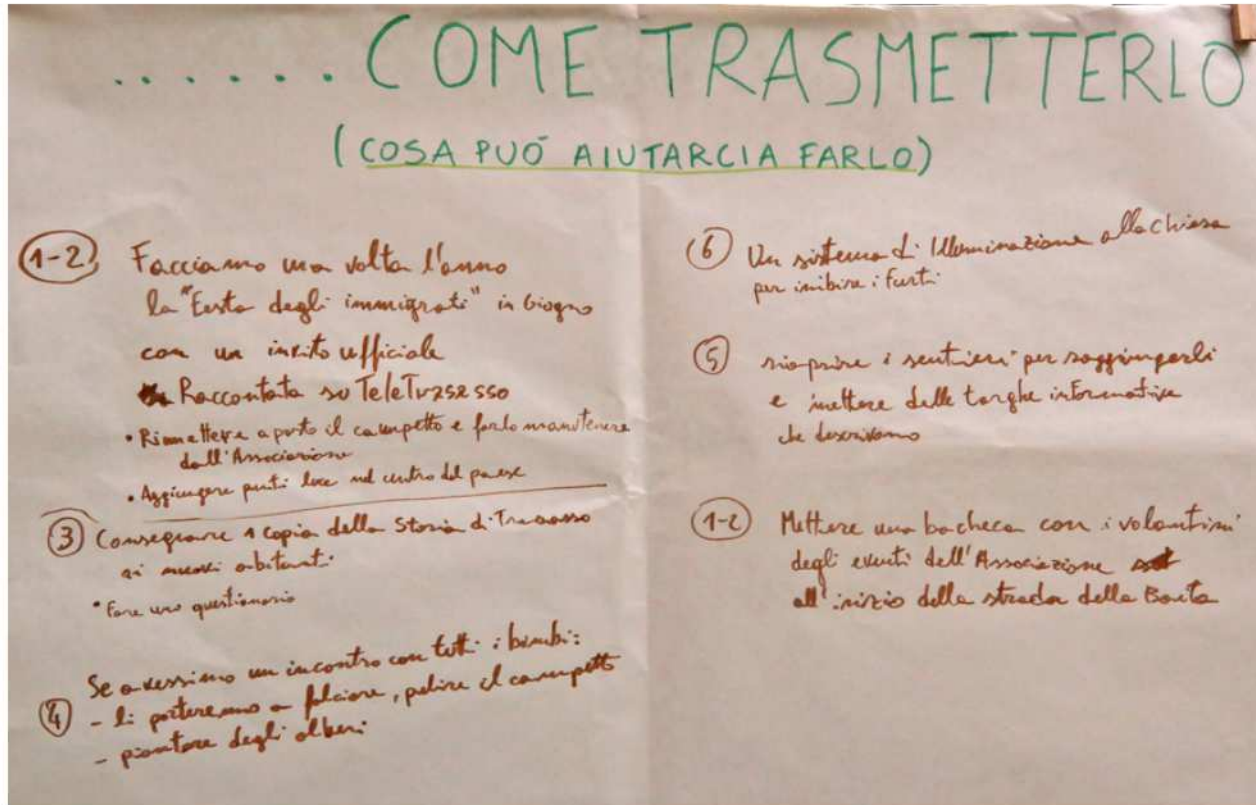 ...... COME TRASMETTERLO
(COSA PUÓ AIUTARCIA FARLO)
1-2 Facciamo una volta l'anno
la "Festa degli immigrati" in Giugno
con un invito ufficiale
Raccontata su TeleTvrsesso
• Rimettere a posto il campetto e farlo manutenere
dall'Associazione
• Aggiungere punti luce nel centro del paese
3 Consegnare 1 copia della Storia di
ai nuovi abitanti
• Fare uno questionario
Se avessimo un incontro con tutti i bimbi:
4 - li porteremo a falciare, pulire il campetto
- piantare degli alberi
6 Un sistema di Illuminazione alla Chiesa
per inibire i furti
5 riaprire i sentieri per raggiungerli
e mettere delle targhe informative
che descrivono
1-2 Mettere una bacheca con i volantini
degli eventi dell'Associazione
all'inizio della strada della